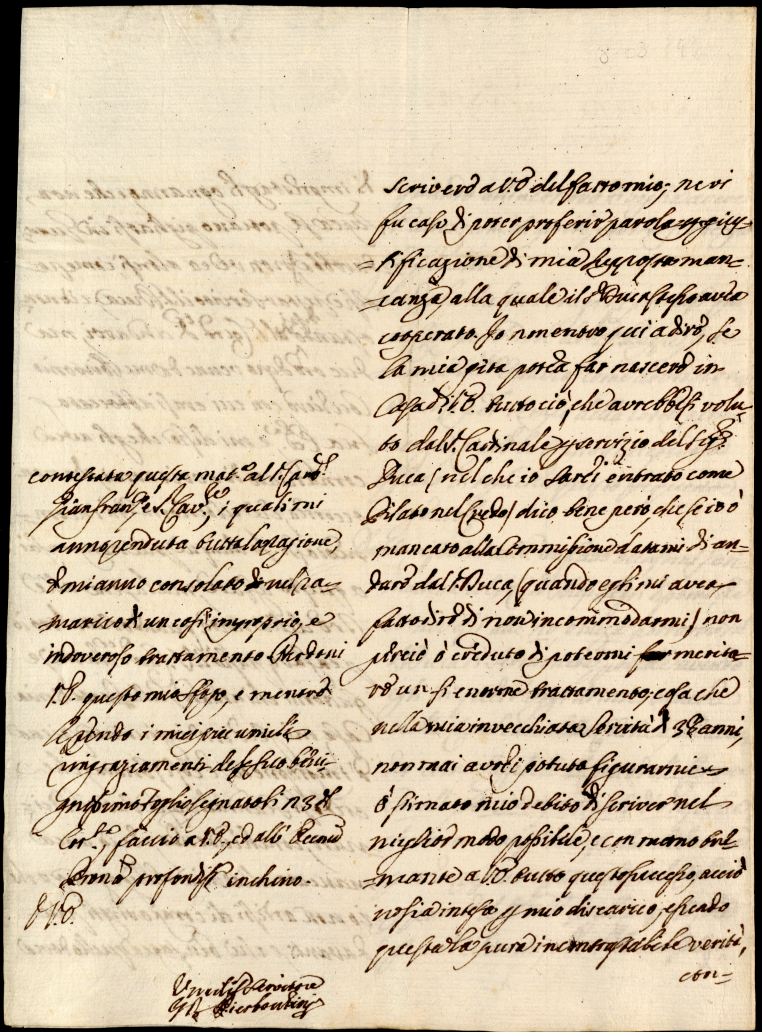 scriverò a V.E. del fatto mio; ne vi
fu caso di poter proferir parola p gius=
=tificazione di mia supposta man=
=canza, alla quale il S. Duca stesso avea
cooperato. Io non entrò qui a dire, se
la mia gita potea far nascere in
Casa di V.E. tutto ciò, che avrebbesi volu=
to dal S. Cardinale p servizio del Sig.
Duca (nel che io sarei entrato come
Pilato nel Credo) dico bene però che se io ò
mancato alla Commissione datami di an=
dare dal S. Duca, (quando egli mi avea
fatto dire di non incommodarmi) non
perciò ò creduto di potermi merita=
re un sì enorme trattamento, cosa che
nella mia invecchiata servitù di 38 anni,
non mai avrei potuta figurarmi e
ò stimato mio debito di scriver nel
miglior modo possibile, e con mano tre=
mante a V.E. tutto questo successo, acciò
ne sia intesa p mio discarico, essendo
questa la pura incontrastabile verità,
con=
contestata questa mat.a al S. Card.
Gianfran. e S. Cav.re, i quali mi
anno renduta tutta la ragione,
e mi anno consolato nel ra=
marico di un così improprio, e
indoveroso trattamento. Perdoni
V.E. questo mio sfogo, e mentre
le rendo i miei più umili
ringraziamenti del suo beni=
gnissimo foglio segnato li 23 del
Corr.e, faccio a V.E. ed all'
profondiss. inchino.
D V.E.
Um.o Servitore
Pierbentini